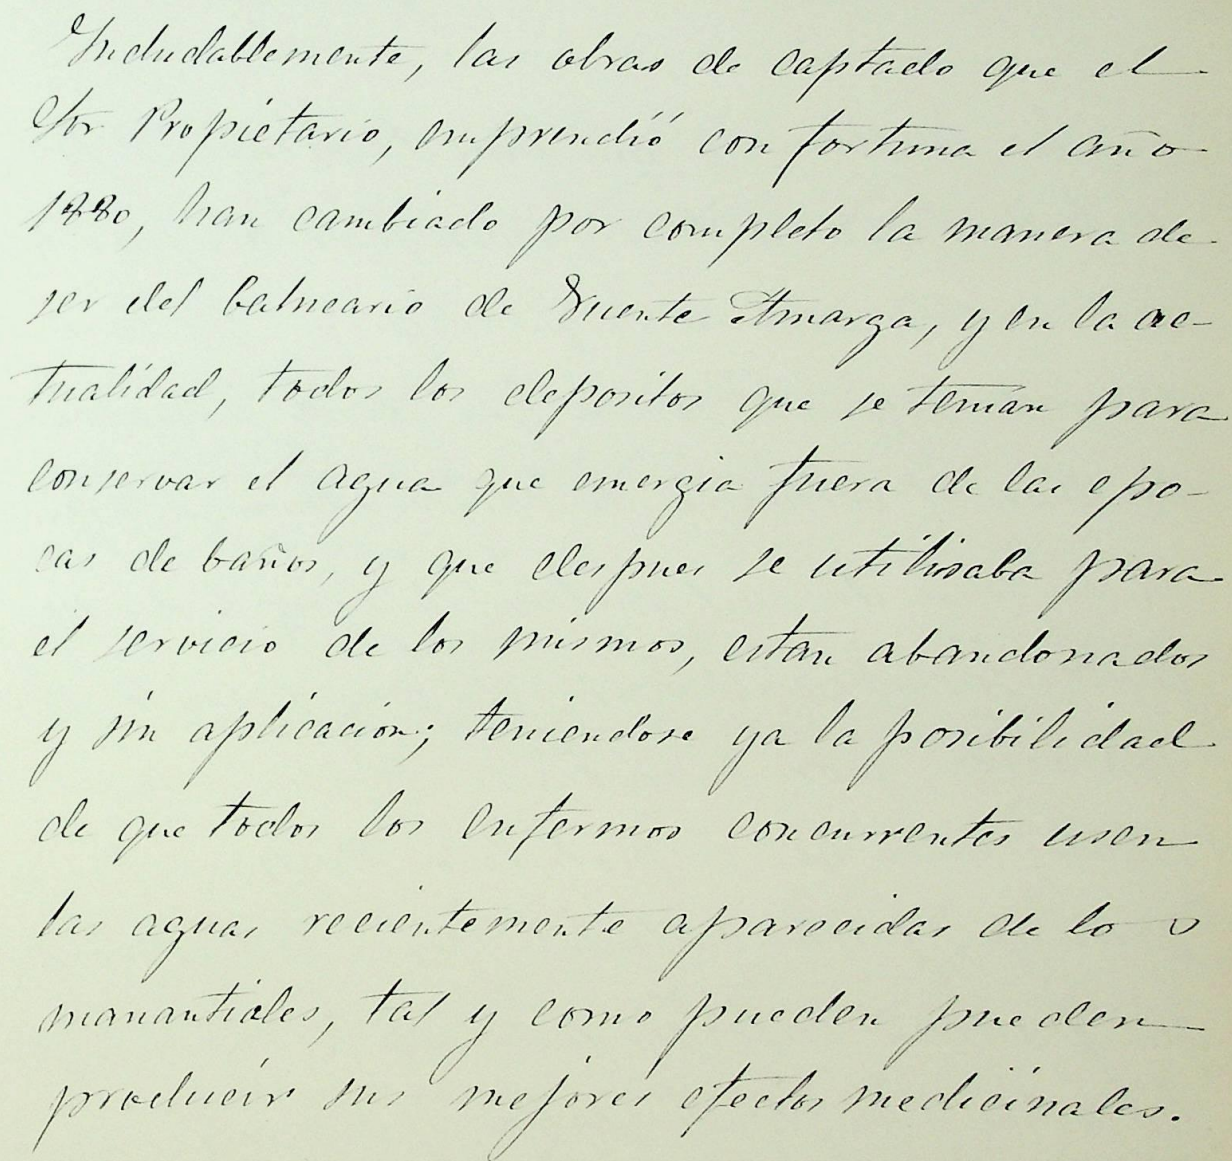 Indudablemente, las obras de captado que el
Sor Propietario, emprendió con fortuna el año
1880, han cambiado por completo la manera de
ser del balneario de Fuente Amarga, y en la ac-
tualidad, todos los depositos que se tenian para
conservar el agua que emergia fuera de las epo-
cas de baños, y que despues se utilisaba para
el servicio de los mismos, estan abandonados
y sin aplicación; teniendose ya la posibilidad
de que todos los enfermos concurrentes usen
las aguas recientemente aparecidas de los
manantiales, tal y como pueden pueden
producir sus mejores efectos medicinales.